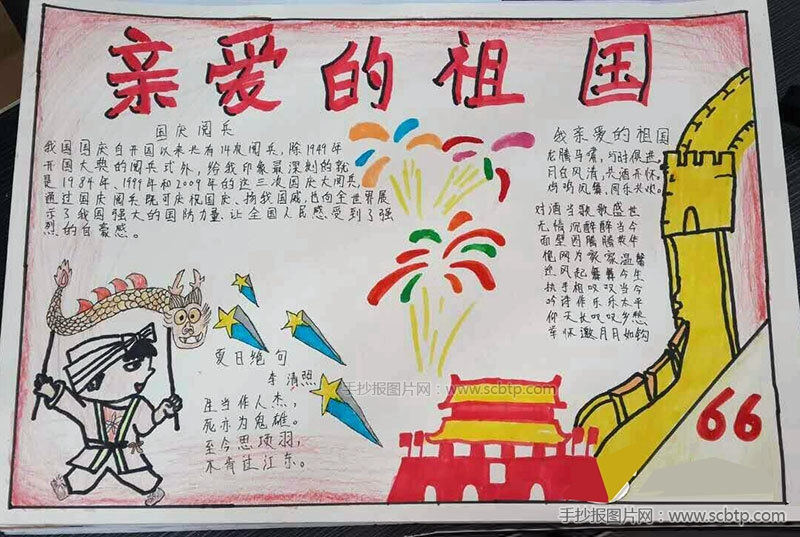 亲爱的祖国
国庆阅兵
我国国庆自开国以来共有14次阅兵,除1949年
开国大典的阅兵式外,给我印象最深刻的就
是1984年、1999年和2009年的这三次国庆大阅兵,
通过国庆阅兵既可庆祝国庆、扬我国威,也向全世界展
示了我国强大的国防力量,让全国人民感受到了强
烈的自豪感。
我亲爱的祖国
龙腾马啸,与时俱进,
月白风清,共酒开怀,
鸡鸣凤舞,同乐共欢。
对酒当歌歌盛世
无情沉醉醉当今
面壁图腾腾数年
家家温馨
迎风起舞舞今生
执手相叹叹当今
吟诗作乐乐太平
仰天长叹叹乡愁
举怀邀月月如钩
夏日绝句
李清照
生当作人杰,
死亦为鬼雄。
至今思项羽,
不肯过江东。
66
手抄报图片网:www.scbtp.com
手抄报图片网:www.scbtp.com